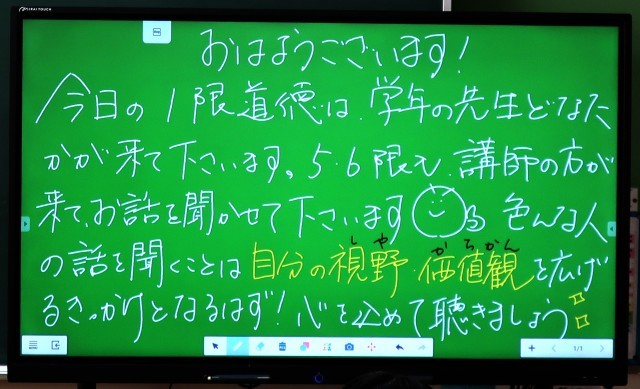 おはようございます!
今日の1限道徳は、学年の先生どなた
かが来て下さいます。5・6限も、講師の方が
来て、お話を聞かせて下さいます 色んな人
の話を聞くことは自分の視野・価値観を広げ
しや かちかん
るきっかけとなるはず!心を込めて聴きましょう
1/1